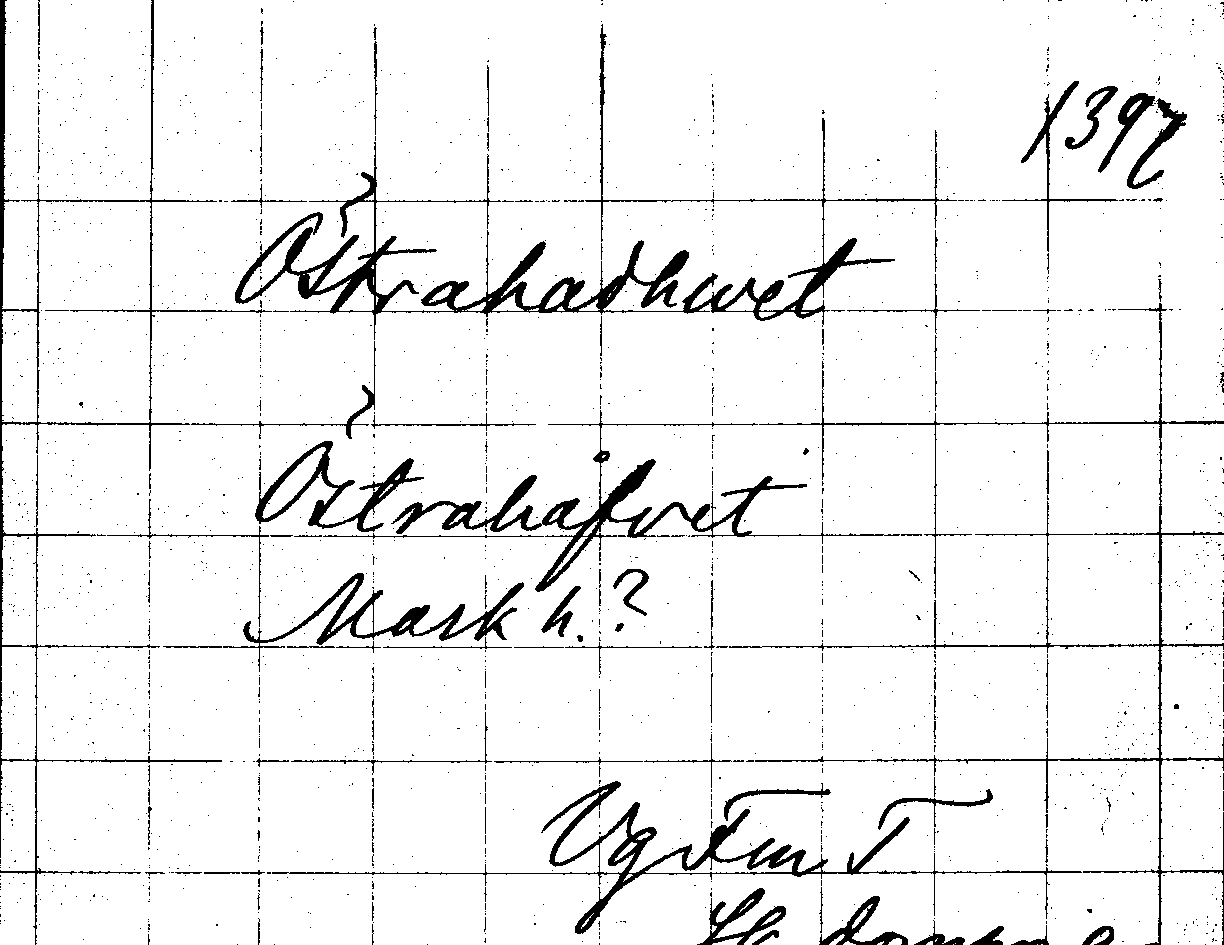 1397
Östrahadhwet
Östrahåfvet
Mark h.?
Vg Fm T